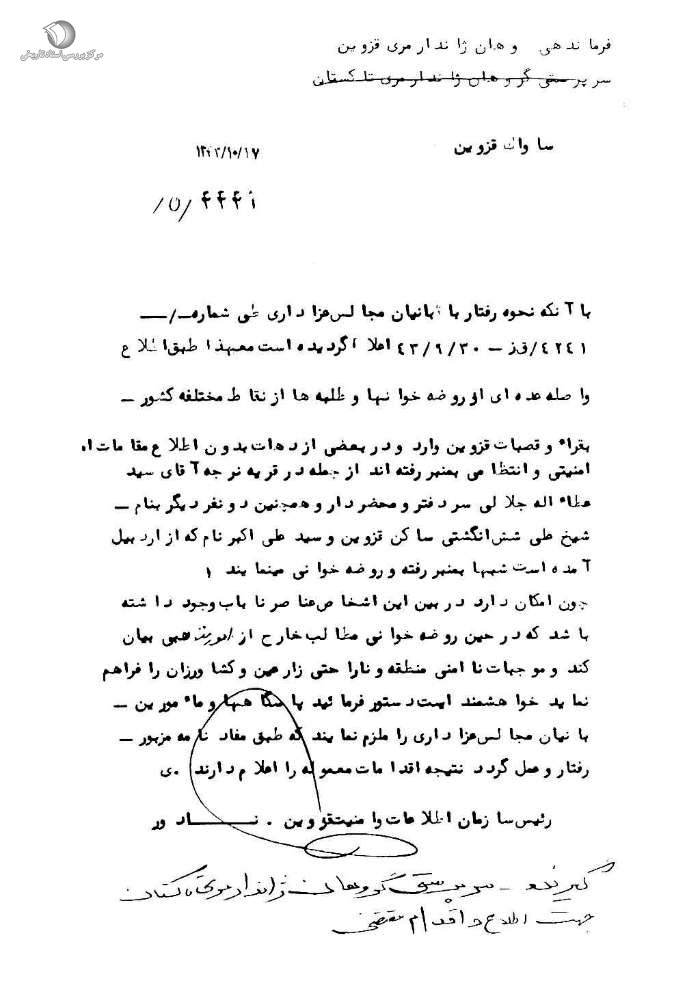 مرکز بررسی اسناد تاریخی
فرماندهی وهان ژاندارمری قزوین
سرپرستی گروهان ژاندارمری تاکستان
ساواك قزوین
۱۳۴۳/۱۰/۱۷
/۵/ ۴۴۴۱
با آنکه نحوه رفتار با بانیان مجالس عزاداری طی شماره ـ/ـ
۴۲۴۱/قز ـ ۴۳/۹/۳۰ اعلام گردیده است معهذا طبق اطلاع
واصله عده ای از روضه خوانها و طلبه ها از نقاط مختلفه کشور ـ
بقراء و قصبات قزوین وارد و در بعضی از دهات بدون اطلاع مقامات
امنیتی و انتظامی بمنبر رفته اند از جمله در قریه نرجه آقای سید
عطاء اله جلالی سردفتر و محضردار و همچنین دو نفر دیگر بنام ـ
شیخ علی شش انگشتی ساکن قزوین و سید علی اکبر نام که از اردبیل
آمده است شبها بمنبر رفته و روضه خوانی مینمایند
چون امکان دارد در بین این اشخاص عناصر ناباب وجود داشته
باشد که در حین روضه خوانی مطالب خارج از امور مذهبی بیان
کند و موجبات ناامنی منطقه و ناراحتی زارعین و کشاورزان را فراهم
نماید خواهشمند است دستور فرمائید پاسگاهها و مامورین ـ
بانیان مجالس عزاداری را ملزم نمایند که طبق مفاد نامه مزبور ـ
رفتار و عمل گردد نتیجه اقدامات معموله را اعلام دارند .ی
رئیس سازمان اطلاعات و امنیت قزوین . نـــادور
گیرنده ـ سرپرستی گروهان ژاندارمری تاکستان
جهت اطلاع و اقدام مقتضی